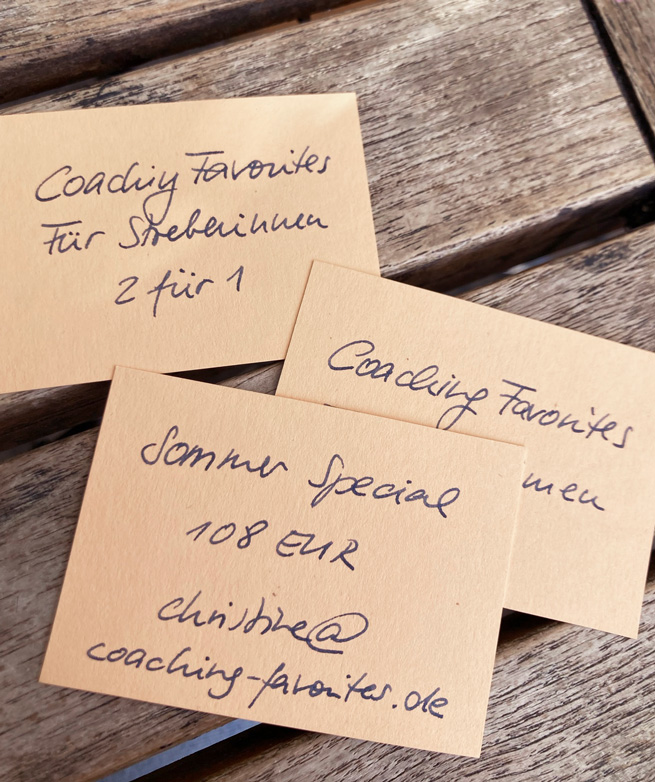 Coaching Favorites
Für Streberinnen
2 für 1
Coaching Favorites
men
Sommer Special
108 EUR
christine@
coaching-favorites.de